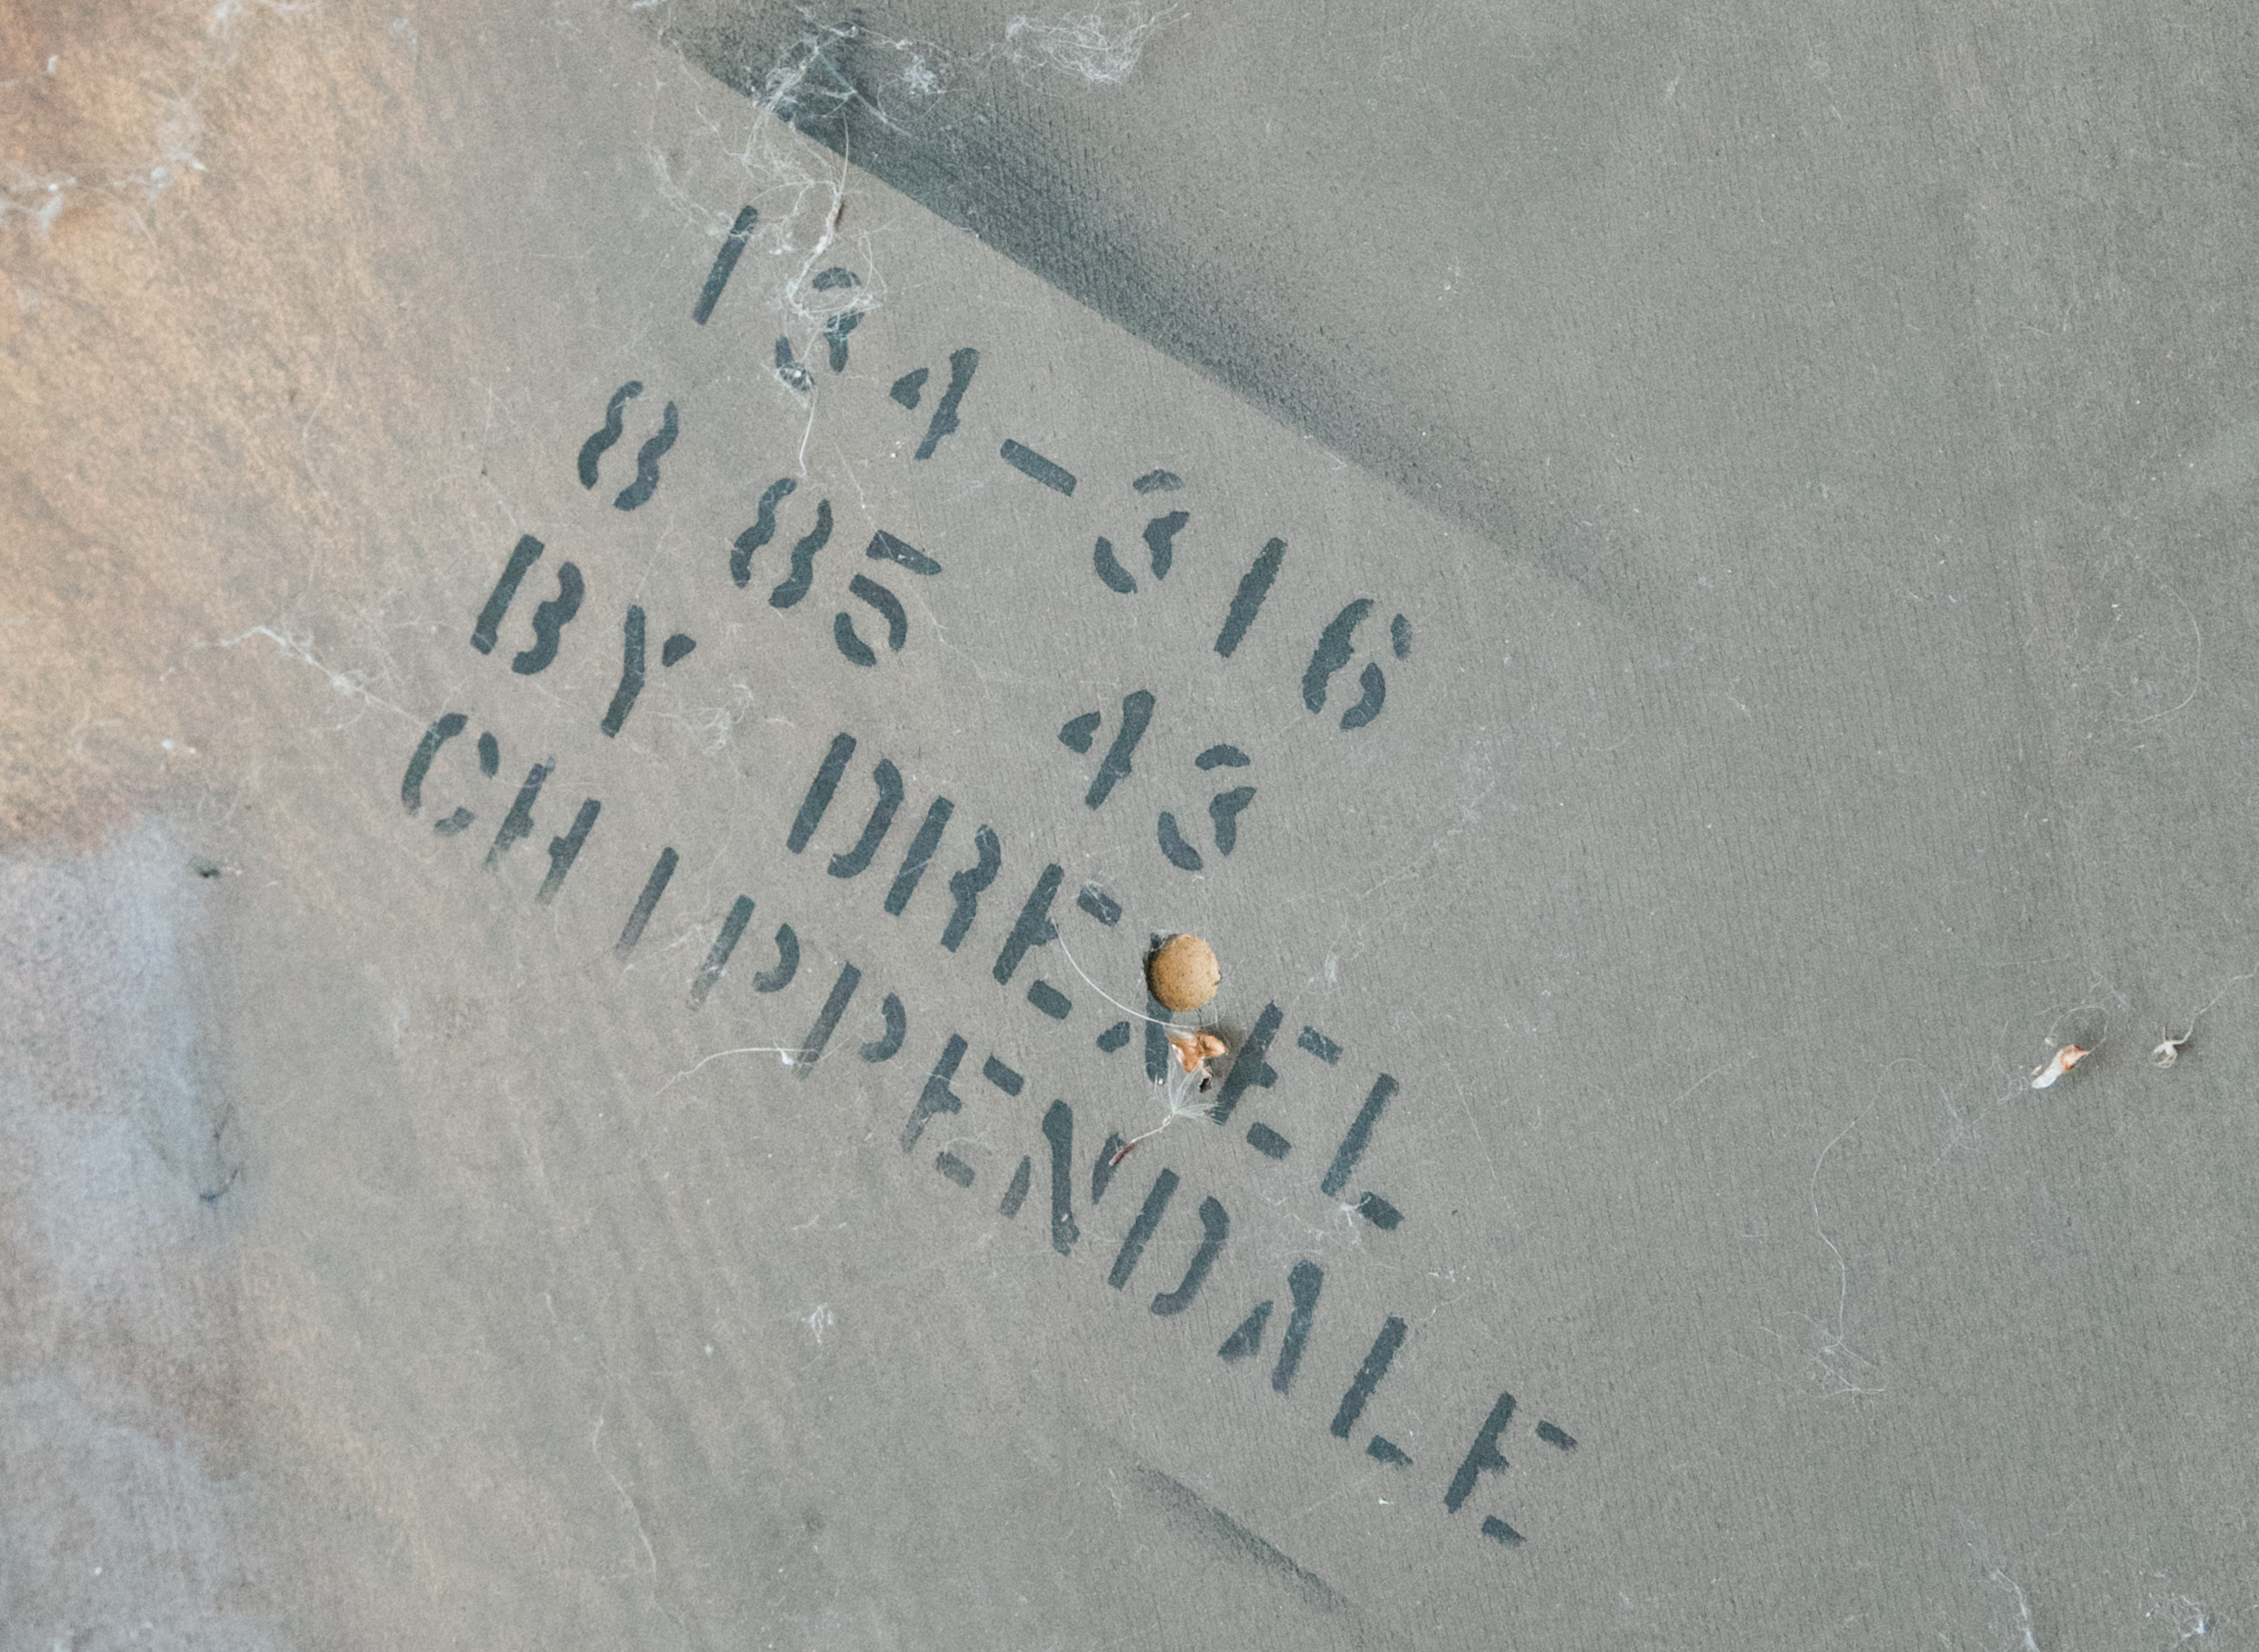 134-316
8 85 43
BY DREXEL
CHIPPENDALE